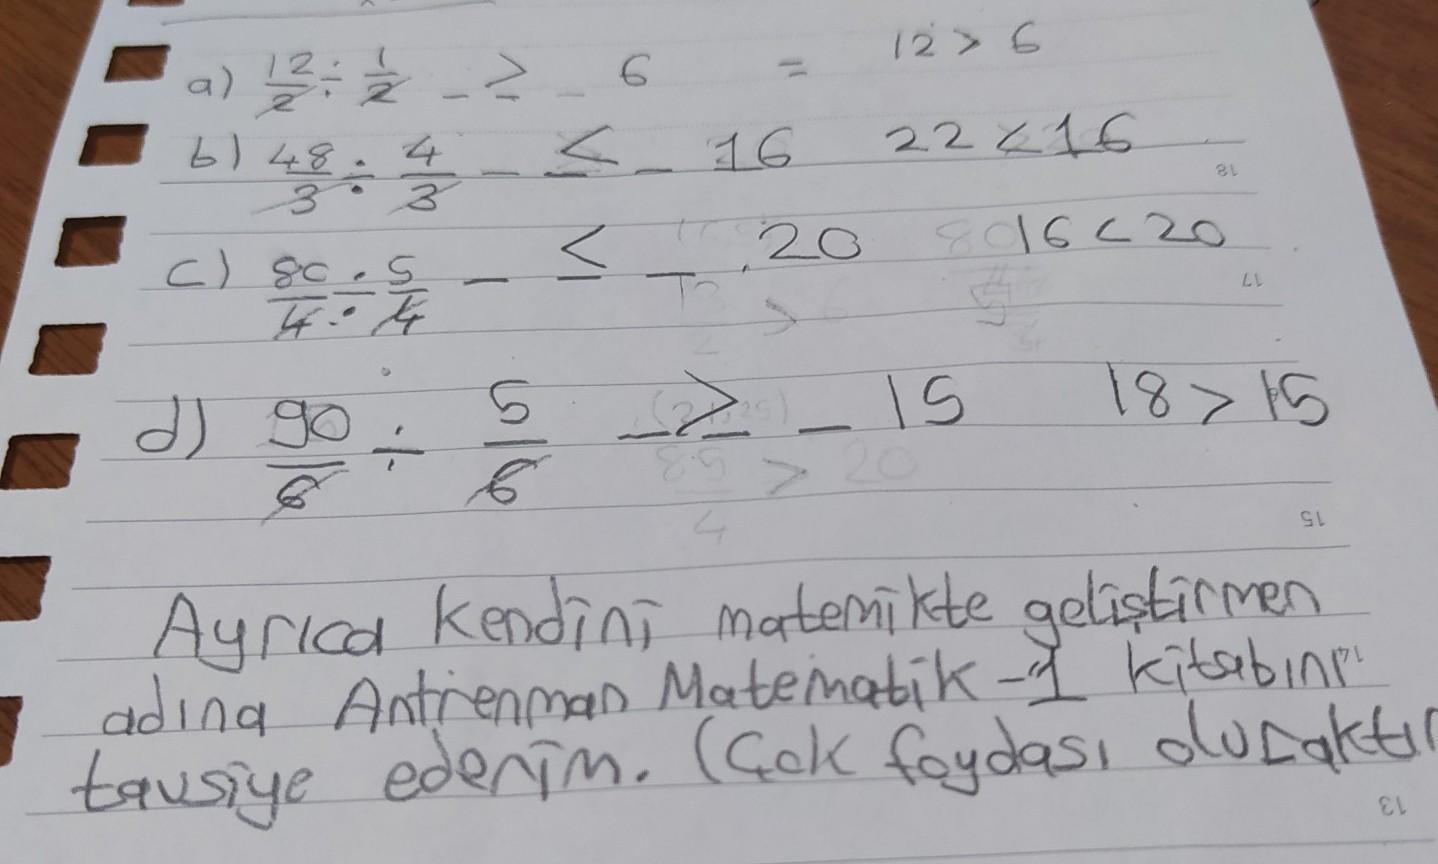 a) 12/2 ÷ 1/2 _ > _ _ 6 = 12 > 6
b) 48/3 ÷ 4/3 _ < _ _ 16 22 < 16
18
c) 80/4 ÷ 5/4 _ < _ _ 20 16 < 20
17
d) 90/6 ÷ 5/6 _ > _ _ 15 18 > 15
15
Ayrıca kendini matemikte geliştirmen
adına Antrenman Matematik-1 kitabını
14
tavsiye ederim. (Çok faydası olucaktır
13